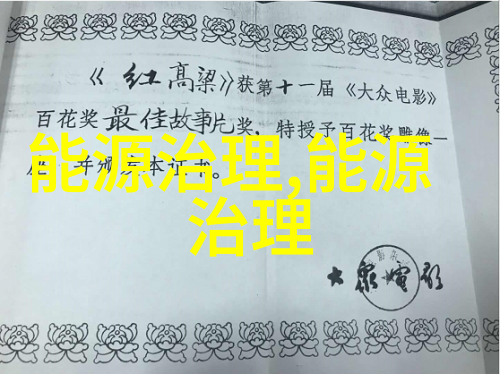 《红高粱》获第十一届《大众电影》
百花奖最佳故事片奖，特授予百花奖雕像一
座，并颁发本证书。
能源治理,能源
治理
大众电影